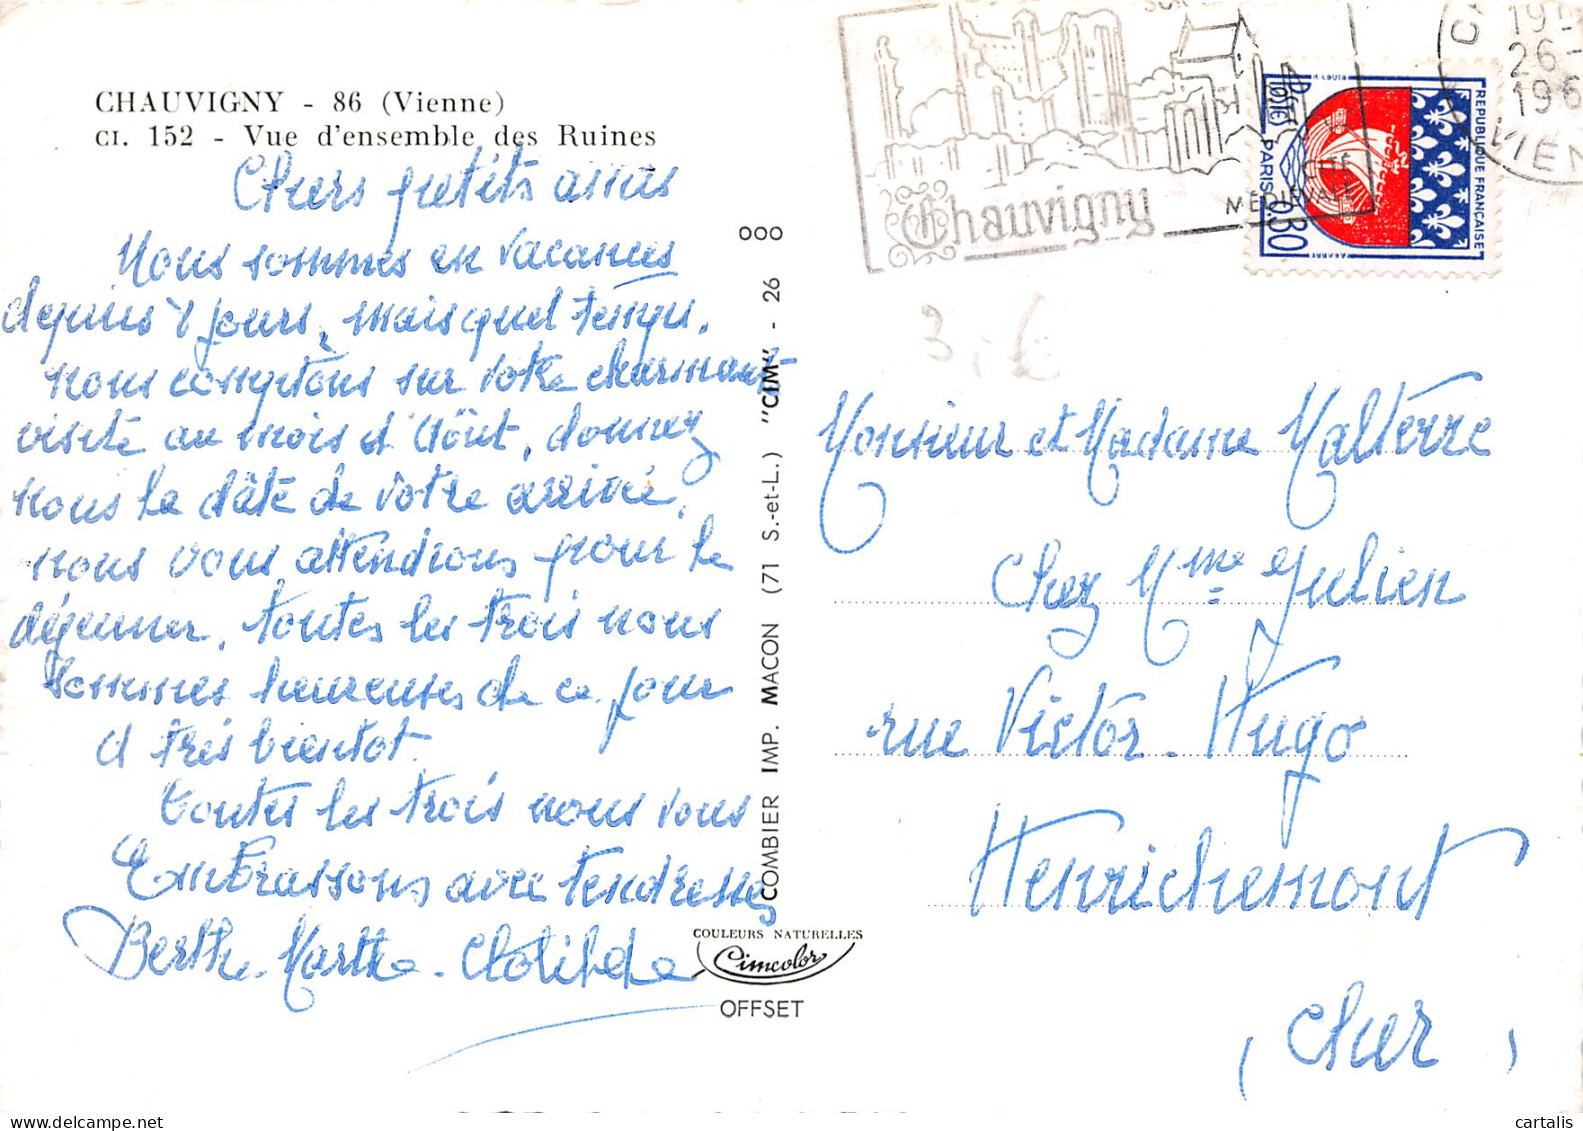 CHAUVIGNY - 86 (Vienne)
CI. 152 - Vue d'ensemble des Ruines
Chers petits amis
Nous sommes en vacances
depuis 8 jours, mais quel temps.
nous comptons sur votre charmante
visite au mois d'Aôut, donnez
nous la dâte de votre arrivée,
nous vous attendrons pour le
déjeuner, toutes les trois nous
sommes heureuses de ce jour
A très bientot.
Toutes les trois nous vous
Embrassons avec tendresses
Berthe - Marthe - Clotilde
000
COMBIER IMP. MACON (71 S.-et-L.) "CIM" - 26
COULEURS NATURELLES
Cimcolor
OFFSET
Chauvigny
CITÉ
MÉDIÉVALE
Postes
PARIS 0,30
REPUBLIQUE FRANÇAISE
19
26 -
196
VIEN
3,€
Monsieur et Madame Malterre
Chez Mme Julien
rue Victor-Hugo
Henrichemont
(Cher)
cartalis
delcampe.net